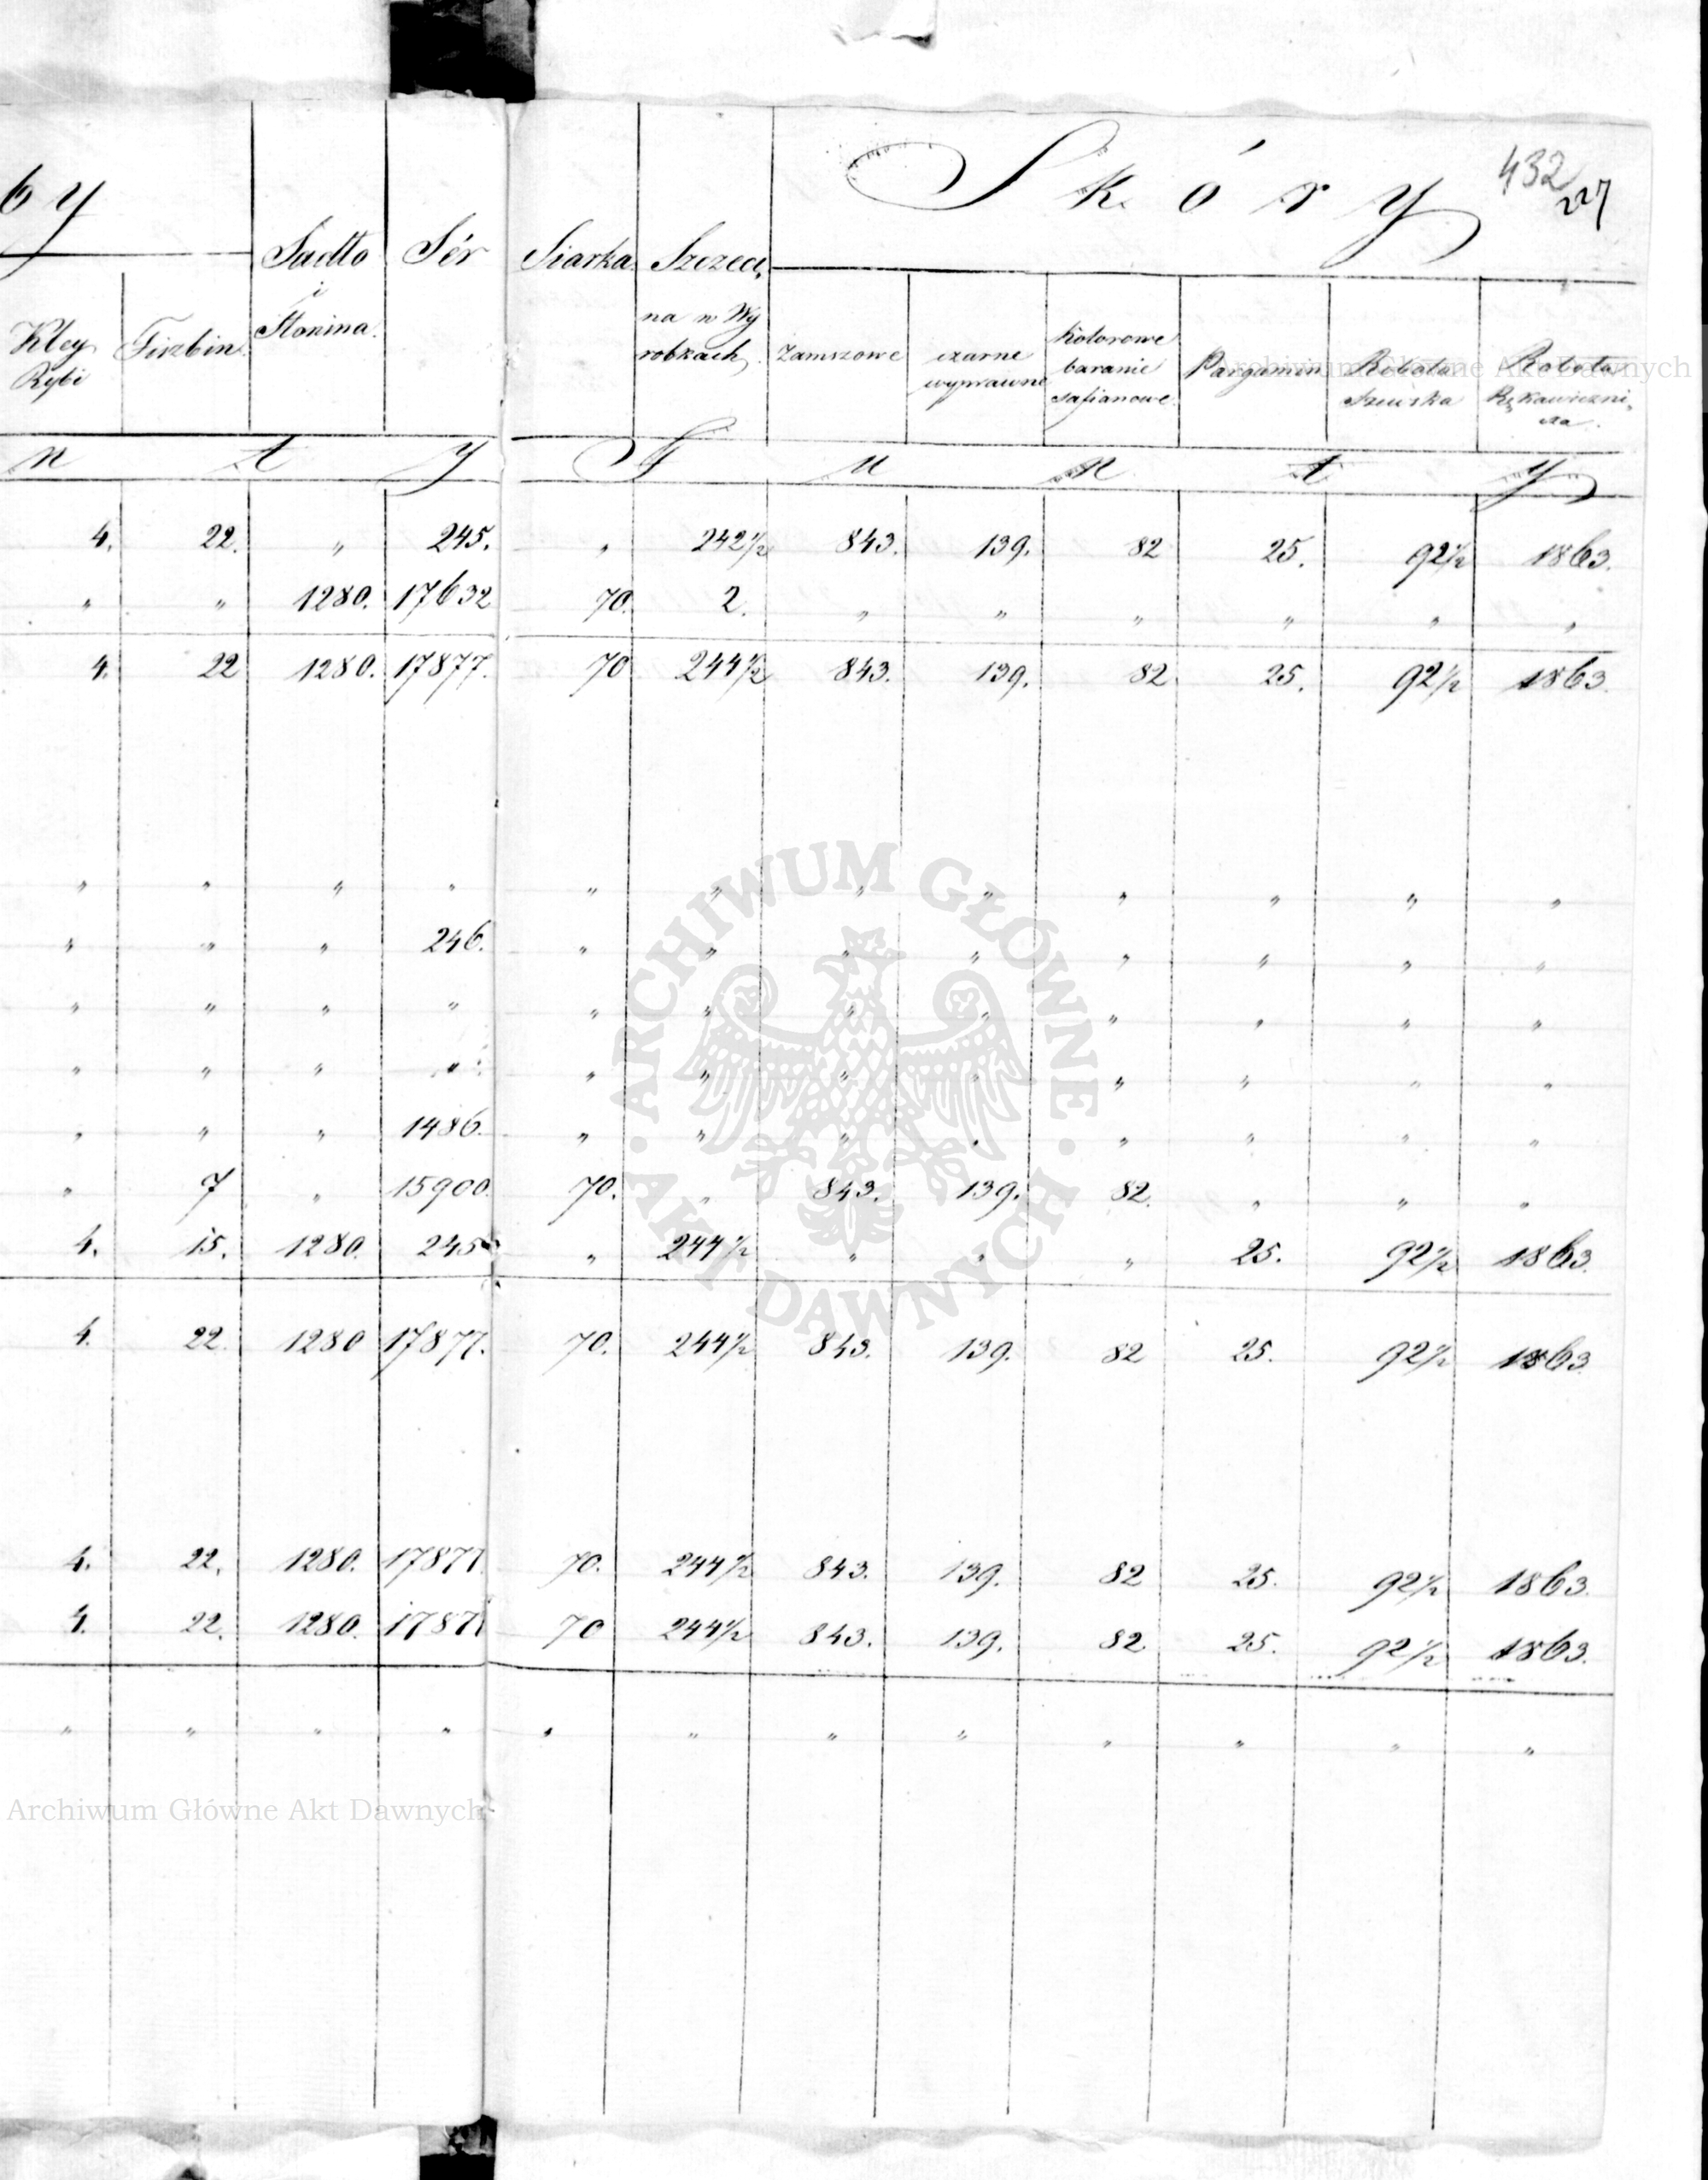 432
227
by Skóry
Sadło i Słonina Sér Siarka Szczeci„
na w Wy
robkach
Kley Rybi Fiszbin Zamszowe czarne wyprawne Kolorowe baranie safianowe Pargamin Robota Szewska Robota Rękawiczni„
cza
n t y F u n t y
4. 22. „ 245. „ 242½ 843. 139. 82 25. 92½ 1863.
„ „ 1280. 17632 70. 2. „ „ „ „ „ „
4. 22 1280. 17877. 70 244½ 843. 139. 82 25. 92½ 1863.
„ „ „ „ „ „ „ „ „ „ „ „
„ „ „ 246. „ „ „ „ „ „ „ „
„ „ „ „ „ „ „ „ „ „ „ „
„ „ „ „ „ „ „ „ „ „ „ „
„ „ „ 1486. „ „ „ „ „ „ „ „
„ 7 „ 15900. 70. „ 843. 139. 82. „ „ „
4. 15. 1280. 245 „ 244½ „ „ „ 25. 92½ 1863.
4. 22. 1280 17877. 70. 244½ 843. 139. 82 25. 92½ 1863
4. 22. 1280. 17877 70. 244½ 843. 139. 82 25. 92½ 1863.
4. 22. 1280. 17877 70 244½ 843. 139. 82. 25. 92½ 1863.
„ „ „ „ „ „ „ „ „ „ „ „
Archiwum Główne Akt Dawnych
ARCHIWUM GŁÓWNE · AKT DAWNYCH ·
Archiwum Główne Akt Dawnych